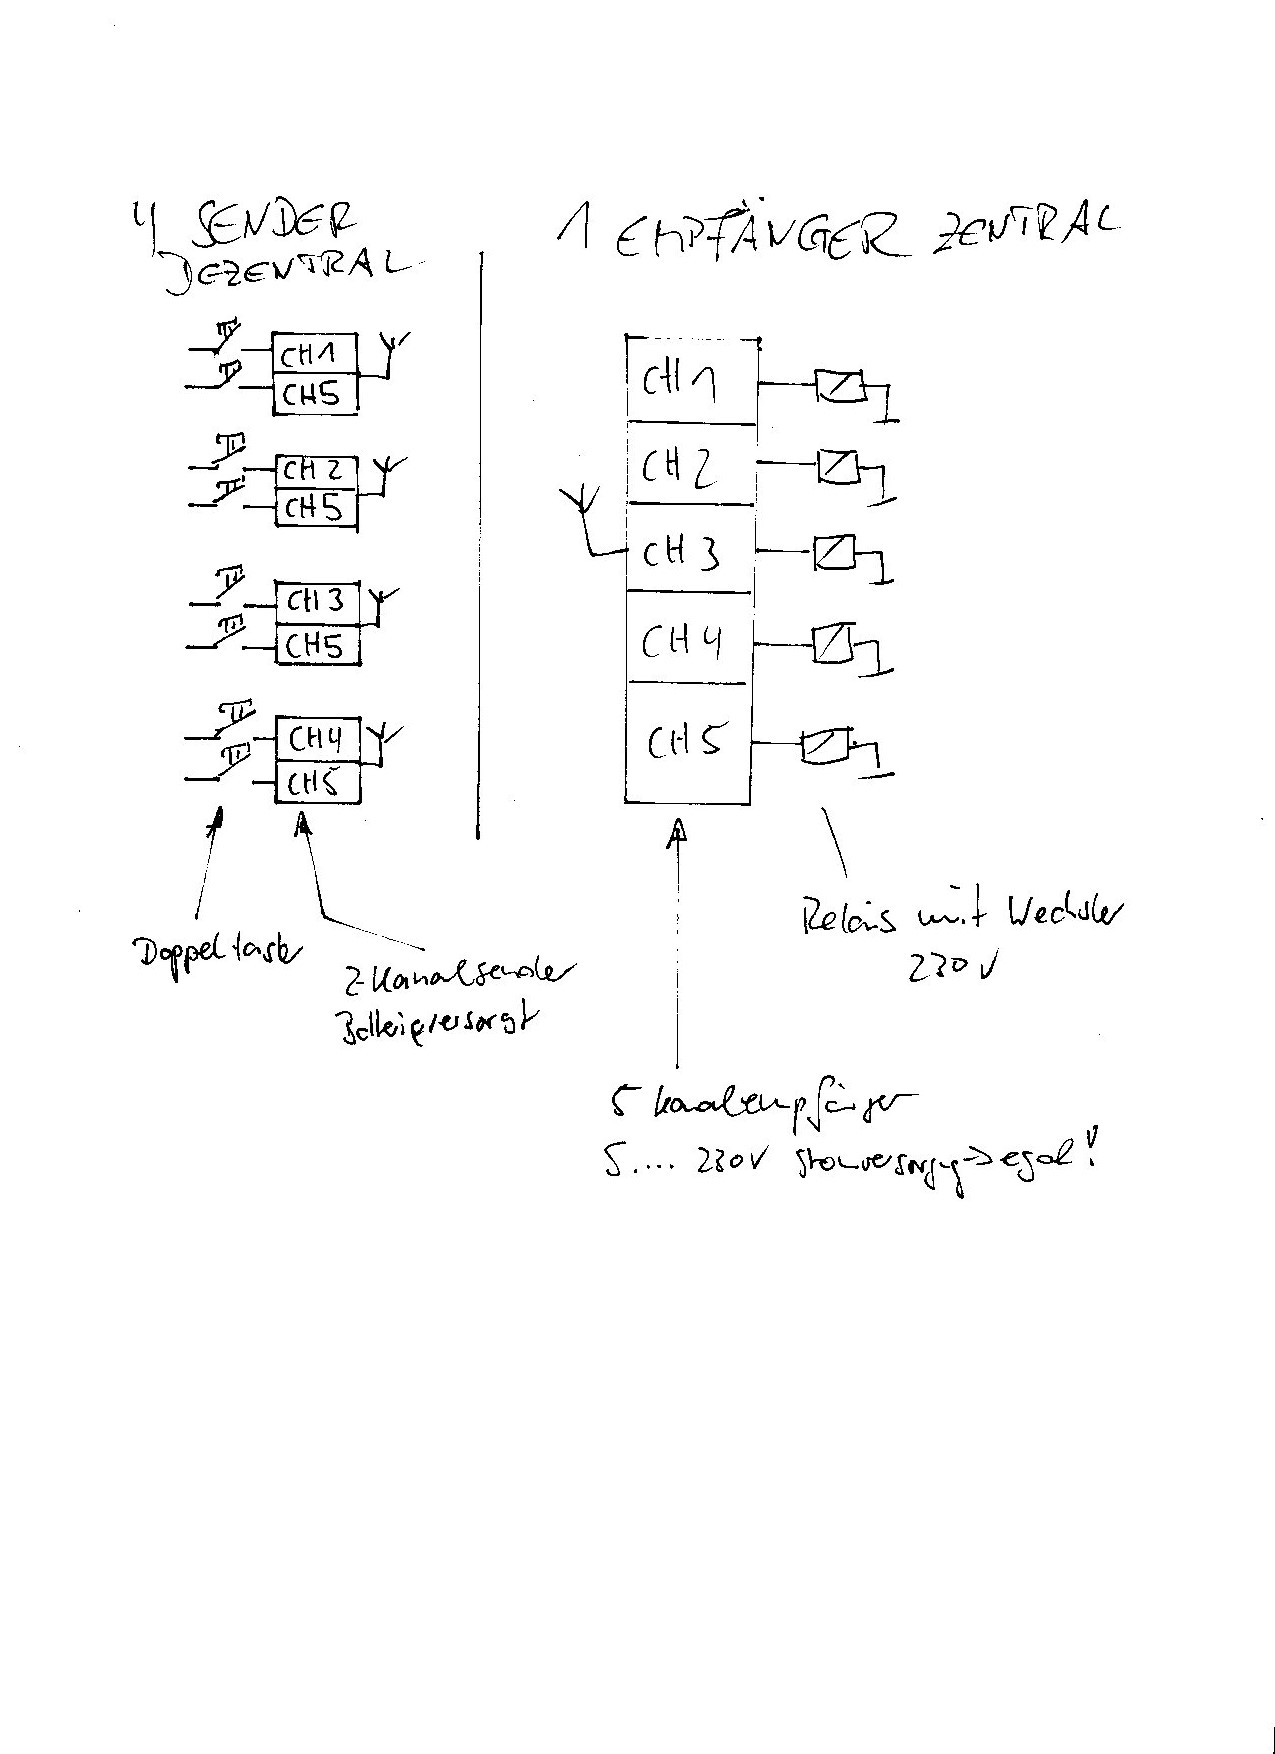 4 SENDER
DEZENTRAL
1 EMPFÄNGER ZENTRAL
CH1
CH5
CH2
CH5
CH3
CH5
CH4
CH5
CH1
CH2
CH3
CH4
CH5
Doppeltaster
2-Kanalsender
Batterieversorgt
Relais mit Wechsler
230V
5 Kanalempfänger
5.... 230V Stromversorgung->egal!